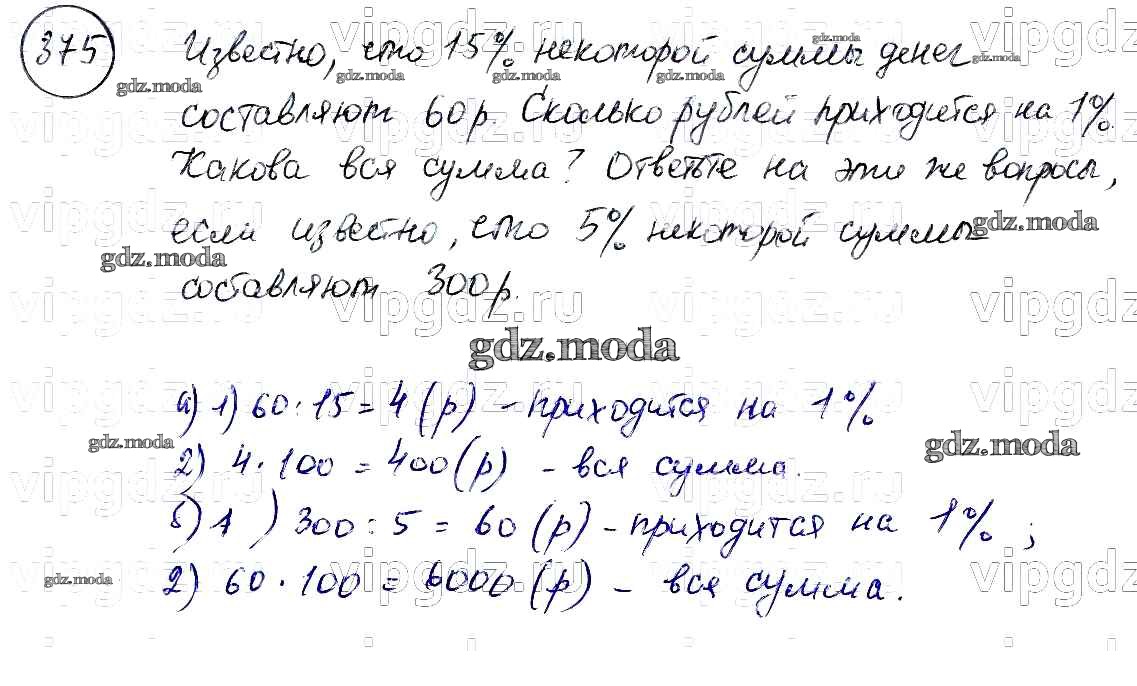 375 Известно, что 15% некоторой суммы денег
составляют 60 р. Сколько рублей приходится на 1%.
Какова вся сумма? Ответьте на эти же вопросы,
если известно, что 5% некоторой суммы
составляют 300 р.
gdz.moda
а) 1) 60 : 15 = 4 (р) - приходится на 1%
2) 4 · 100 = 400 (р) - вся сумма.
б) 1) 300 : 5 = 60 (р) - приходится на 1%;
2) 60 · 100 = 6000 (р) - вся сумма.
vipgdz.ru